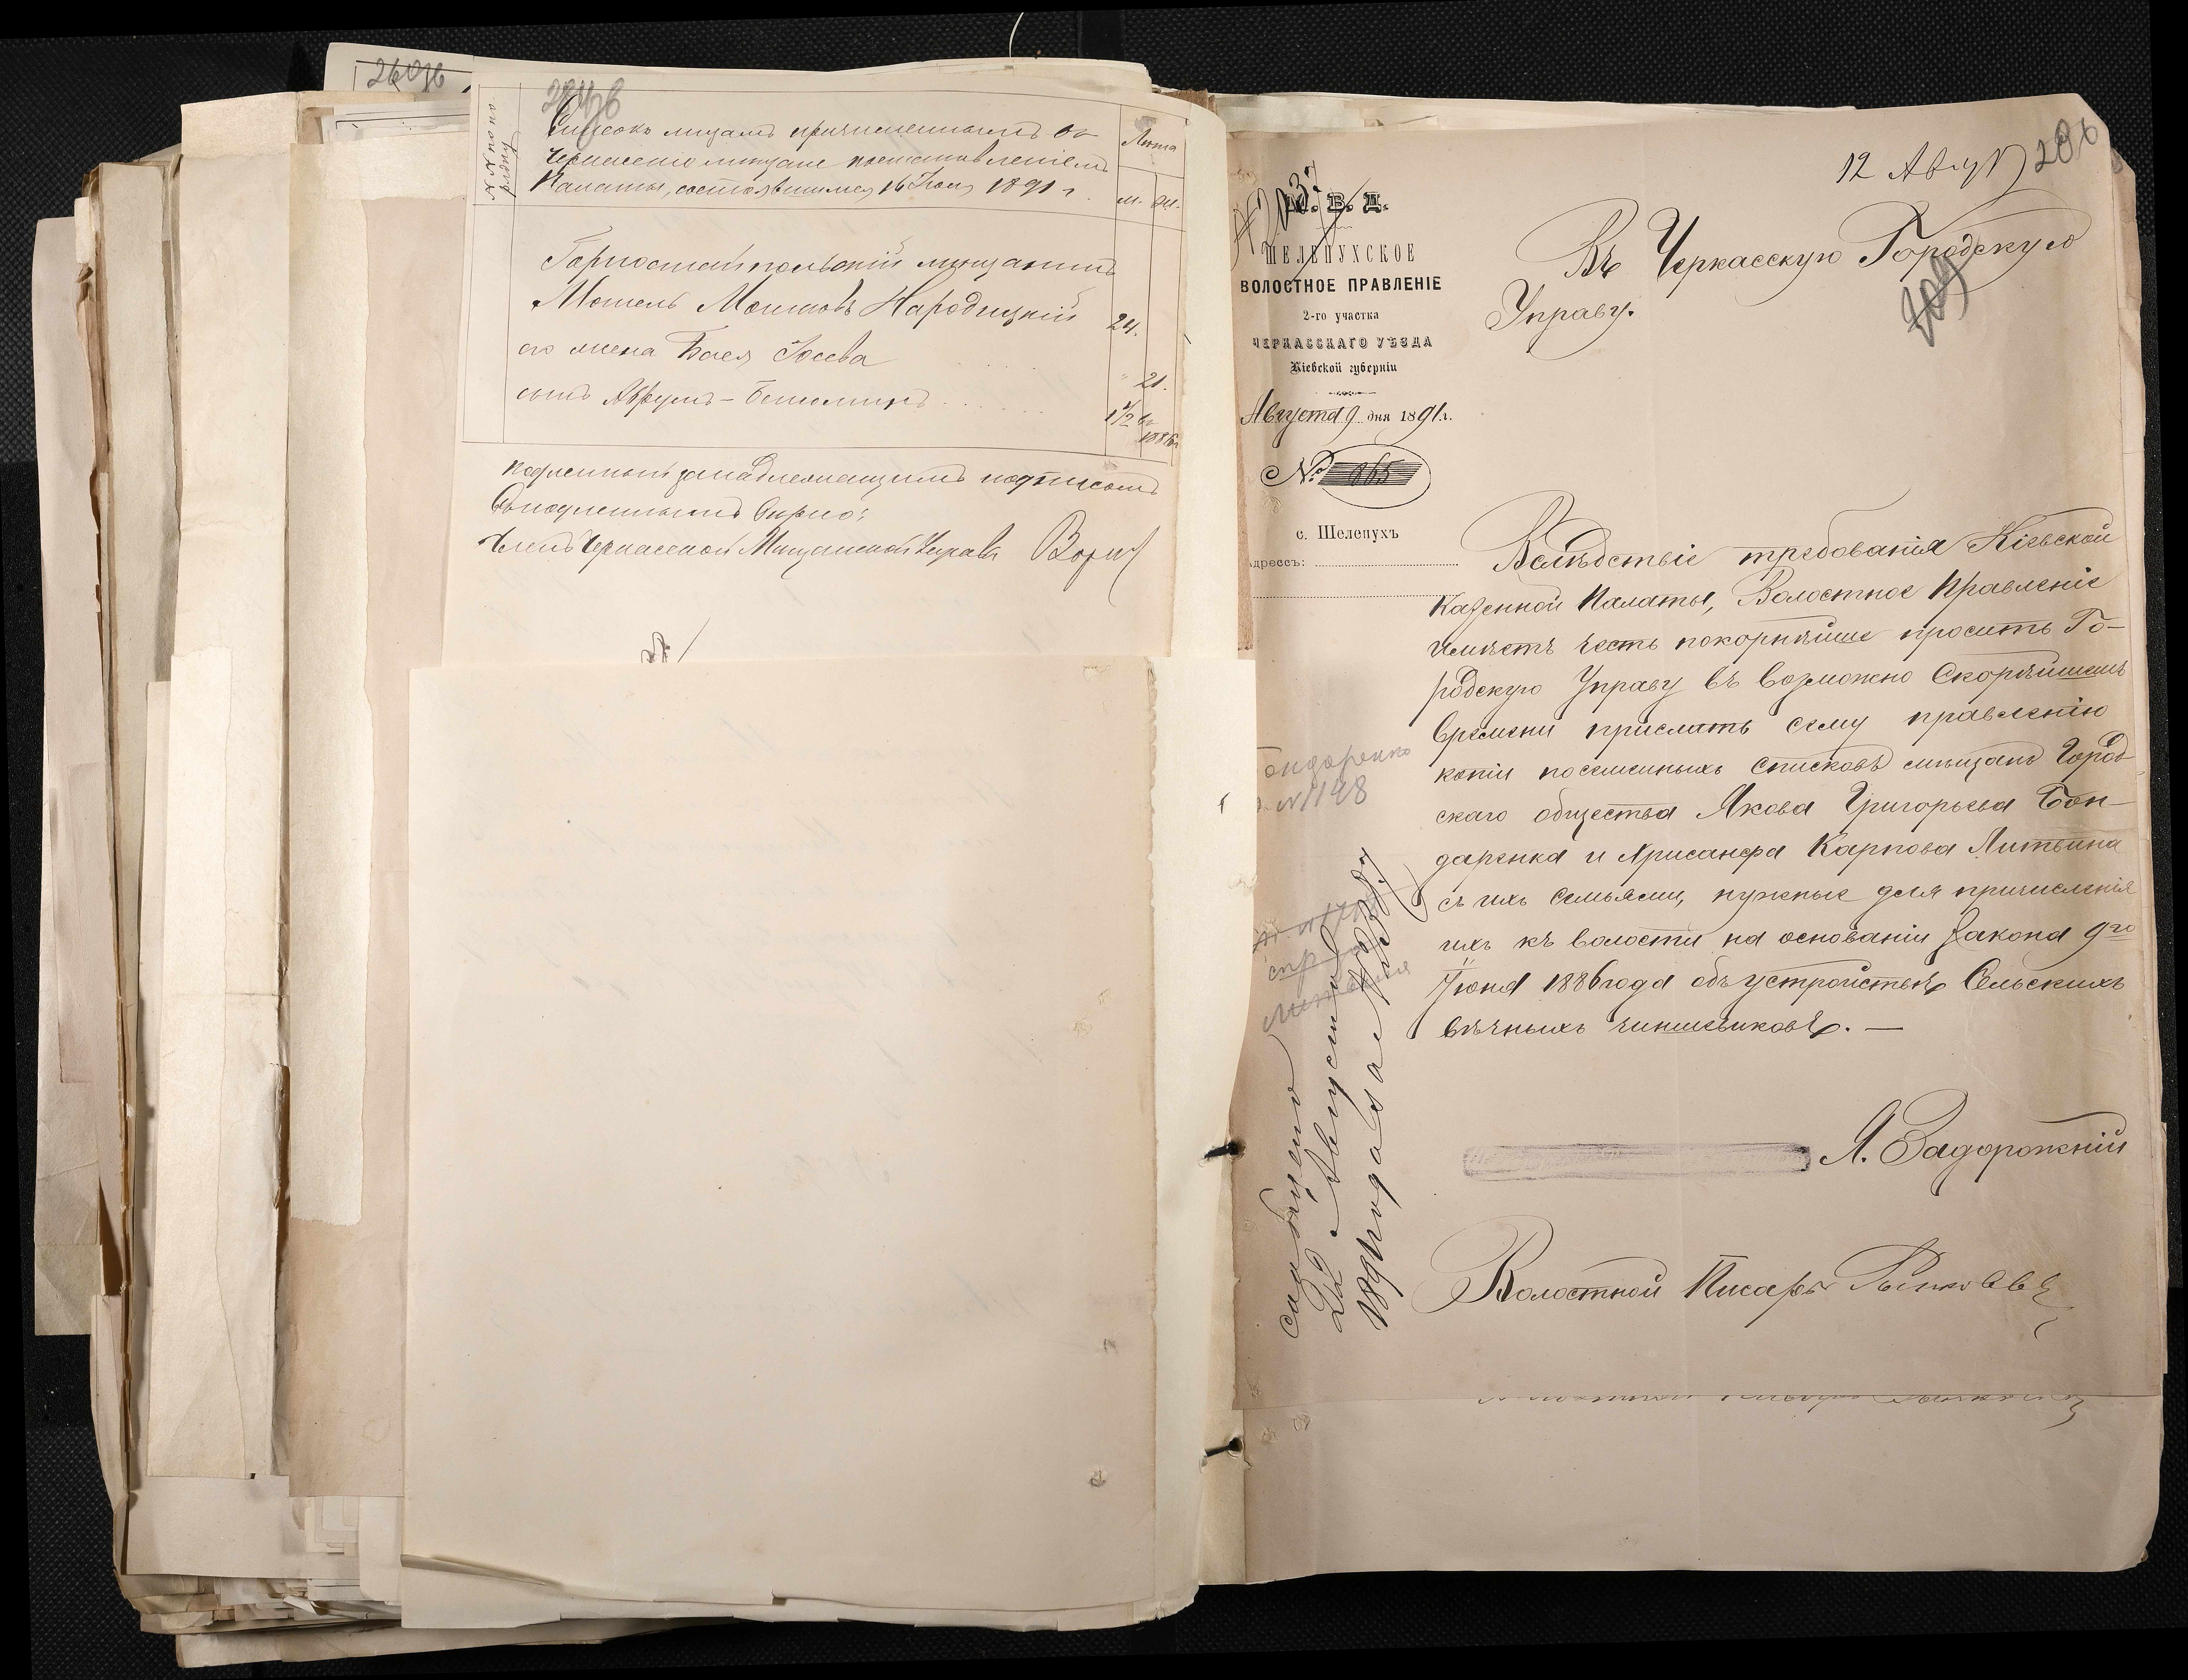 №№ по по-
рядку
Списокъ лицамъ причисленнымъ въ
Черкасскіе мѣщане постановленіемъ
Палаты, состоявшимся 16 Іюля 1891 г.
Лѣта
м. ж.
Горностайпольскій мѣщанинъ
Мошель Мошковъ Народицкій
24.
его жена Бася Іосева
21.
сынъ Аврумъ-Беньминъ
1 1/2 въ
1886
Подлинный за надлежащимъ подписомъ
Съ подлиннымъ вѣрно:
Членъ Черкасской Мѣщанской Управы
12 Авгус
М. В. Д.
ШЕЛЕПУХСКОЕ
ВОЛОСТНОЕ ПРАВЛЕНІЕ
2-го участка
ЧЕРКАССКАГО УѢЗДА
Кіевской губерніи
Августа 9 дня 1891 г.
№ 865
с. Шелепухъ
Адрессъ:
Въ Черкасскую Городскую
Управу.
209
Вслѣдствіе требованія Кіевской
Казенной Палаты, Волостное Правленіе
имѣетъ честь покорнѣйше просить Го-
родскую Управу въ возможно скорѣйшемъ
времени прислать сему правленію
копіи посемейныхъ списковъ мѣщанъ Город-
скаго общества Якова Григорьева Бон-
даренка и Хрисанфа Карпова Литвина
съ ихъ семьями, нужные для причисленія
ихъ къ волости на основаніи Закона 9го
Іюня 1886 года объ устройствѣ Сельскихъ
вѣчныхъ чиншевиковъ. —
Бондаренко
№ 1148
Литвина
сообщено
22 Августа
1891 года за №
Я. Задорожній
Волостной Писарь